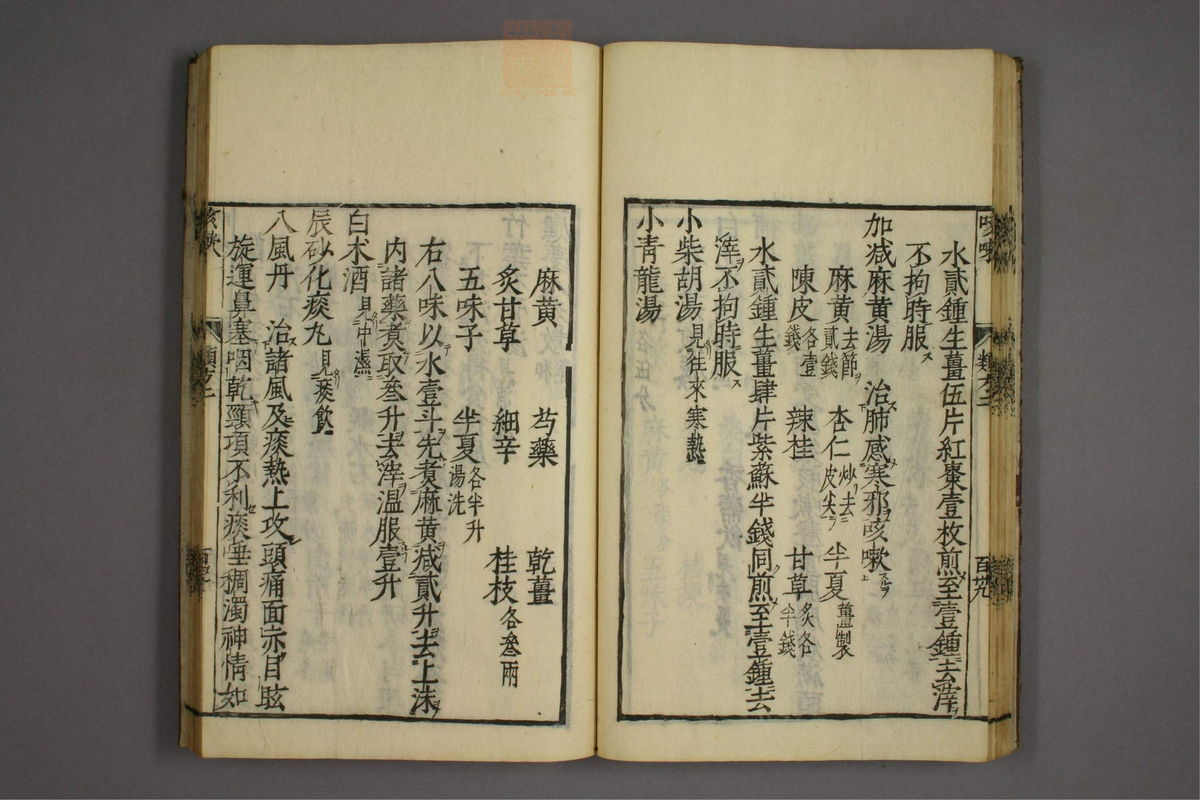 咳嗽
類方二
百九
水貳鍾生薑伍片紅棗壹枚煎至壹鍾去滓
不拘時服
加減麻黄湯 治肺感寒邪咳嗽
麻黄去節貳錢 杏仁炒去皮尖 半夏薑製
陳皮各壹錢 辣桂 甘草炙各半錢
水貳鍾生薑肆片紫蘇半錢同煎至壹鍾去
滓不拘時服
小柴胡湯見往來寒熱
小青龍湯
麻黄 芍藥 乾薑
炙甘草 細辛 桂枝各叁兩
五味子 半夏各半升湯洗
右八味以水壹斗先煮麻黄減貳升去上沫
内諸藥煮取叁升去滓温服壹升
白术酒見中濕
辰砂化痰丸見痰飲
八風丹 治諸風及痰熱上攻頭痛面赤目眩
旋運鼻塞咽乾頸項不利痰唾稠濁神情如